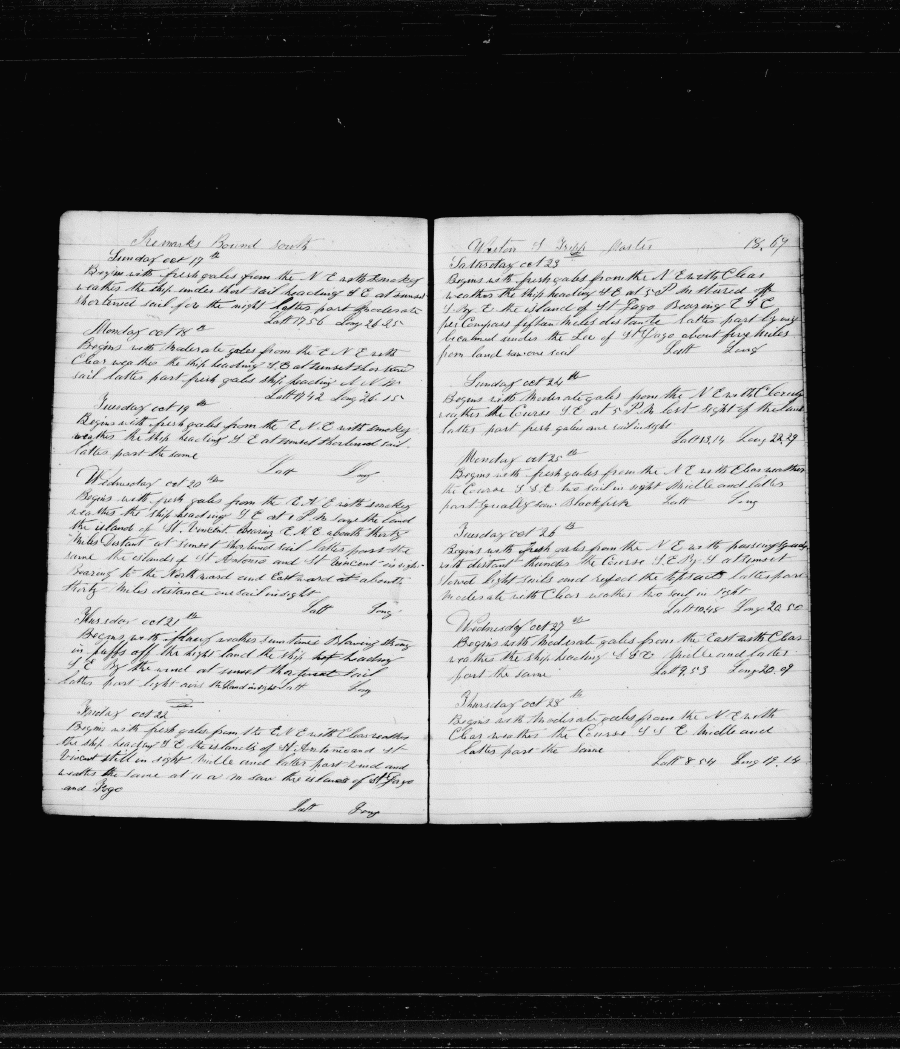 Remarks Bound south
Sunday oct 17th
Begins with fresh gales from the N E with smokey
weather the ship under short sail heading S E at sunset
shortened sail for the night latter part Moderate
Latt 17.56 Long 26.25
Monday oct 18th
Begins with Moderate gales from the E N E with
Clear weather the ship heading S E at sunset shortened
sail latter part fresh gales ship heading N N W
Latt 17.42 Long 26.15
Tuesday oct 19th
Begins with fresh gales from the E N E with smokey
weather the ship heading S E at sunset shortened sail
latter part the same
Latt Long
Wednesday oct 20th
Begins with fresh gales from the E N E with smokey
weather the ship heading S E at 1 P M saw the land
the island of St. Vincent Bearing E N E about thirty
Miles Distant at sunset shortened sail latter part the
same the islands of St Antonio and St Vincent in sight
Bearing to the Northward and Eastward at about
thirty Miles distance one sail in sight
Latt Long
Thursday oct 21th
Begins with weather sometimes Blowing strong
in puffs off the hight land the ship heading
S E By the wind at sunset shortened sail
latter part light airs the land in sight Latt Long
Friday oct 22
Begins with fresh gales from the E N E with Clear weather
the ship heading S E the islands of St. Antonio and St
Vincent still in sight Midle and latter part wind and
weather the same at 11 a m saw the islands of St Jago
and Fogo
Latt Long
Weston S Tripp Master 18,69
Satterday oct 23
Begins with fresh gales from the N E with Clear
weather the ship heading S E at 5 P M
S By E the island of St Jago Bearing E S E
per Compass fifteen Miles distant latter part
becalmed under the Lee of St Jago about five Miles
from land saw one sail Latt Long
Sunday oct 24th
Begins with Moderate gales from the N E with Cloudy
weather the Course S E at 5 P.M lost sight of the land
latter part fresh gales one sail in sight
Latt 13,14 Long 22,29
Monday oct 25th
Begins with fresh gales from the N E with Clear weather
the Course S S E two sail in sight Midle and latter
part Squally saw Blackfish Latt Long
Tuesday oct 26th
Begins with fresh gales from the N E with passing Squalls
with distant thunder the Course S E By S at sunset
furled light sails and reefed the topsails latter part
Moderate with Clear weather two sail in sight
Latt 10.48 Long 20.50
Wednesday oct 27th
Begins with Moderate gales from the East with Clear
weather the ship heading S S E Midle and latter
part the same Latt 9.53 Long 20.09
Thursday oct 28th
Begins with Moderate gales from the N E with
Clear weather the Course S S E Midle and
latter part the same
Latt 8 54 Long 19.14